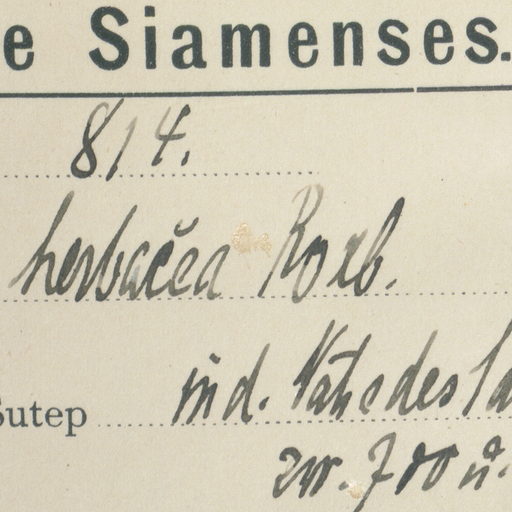 e Siamenses.
814.
herbacea Roxb.
Sutep ind. Nähe des
zw. 700 u.